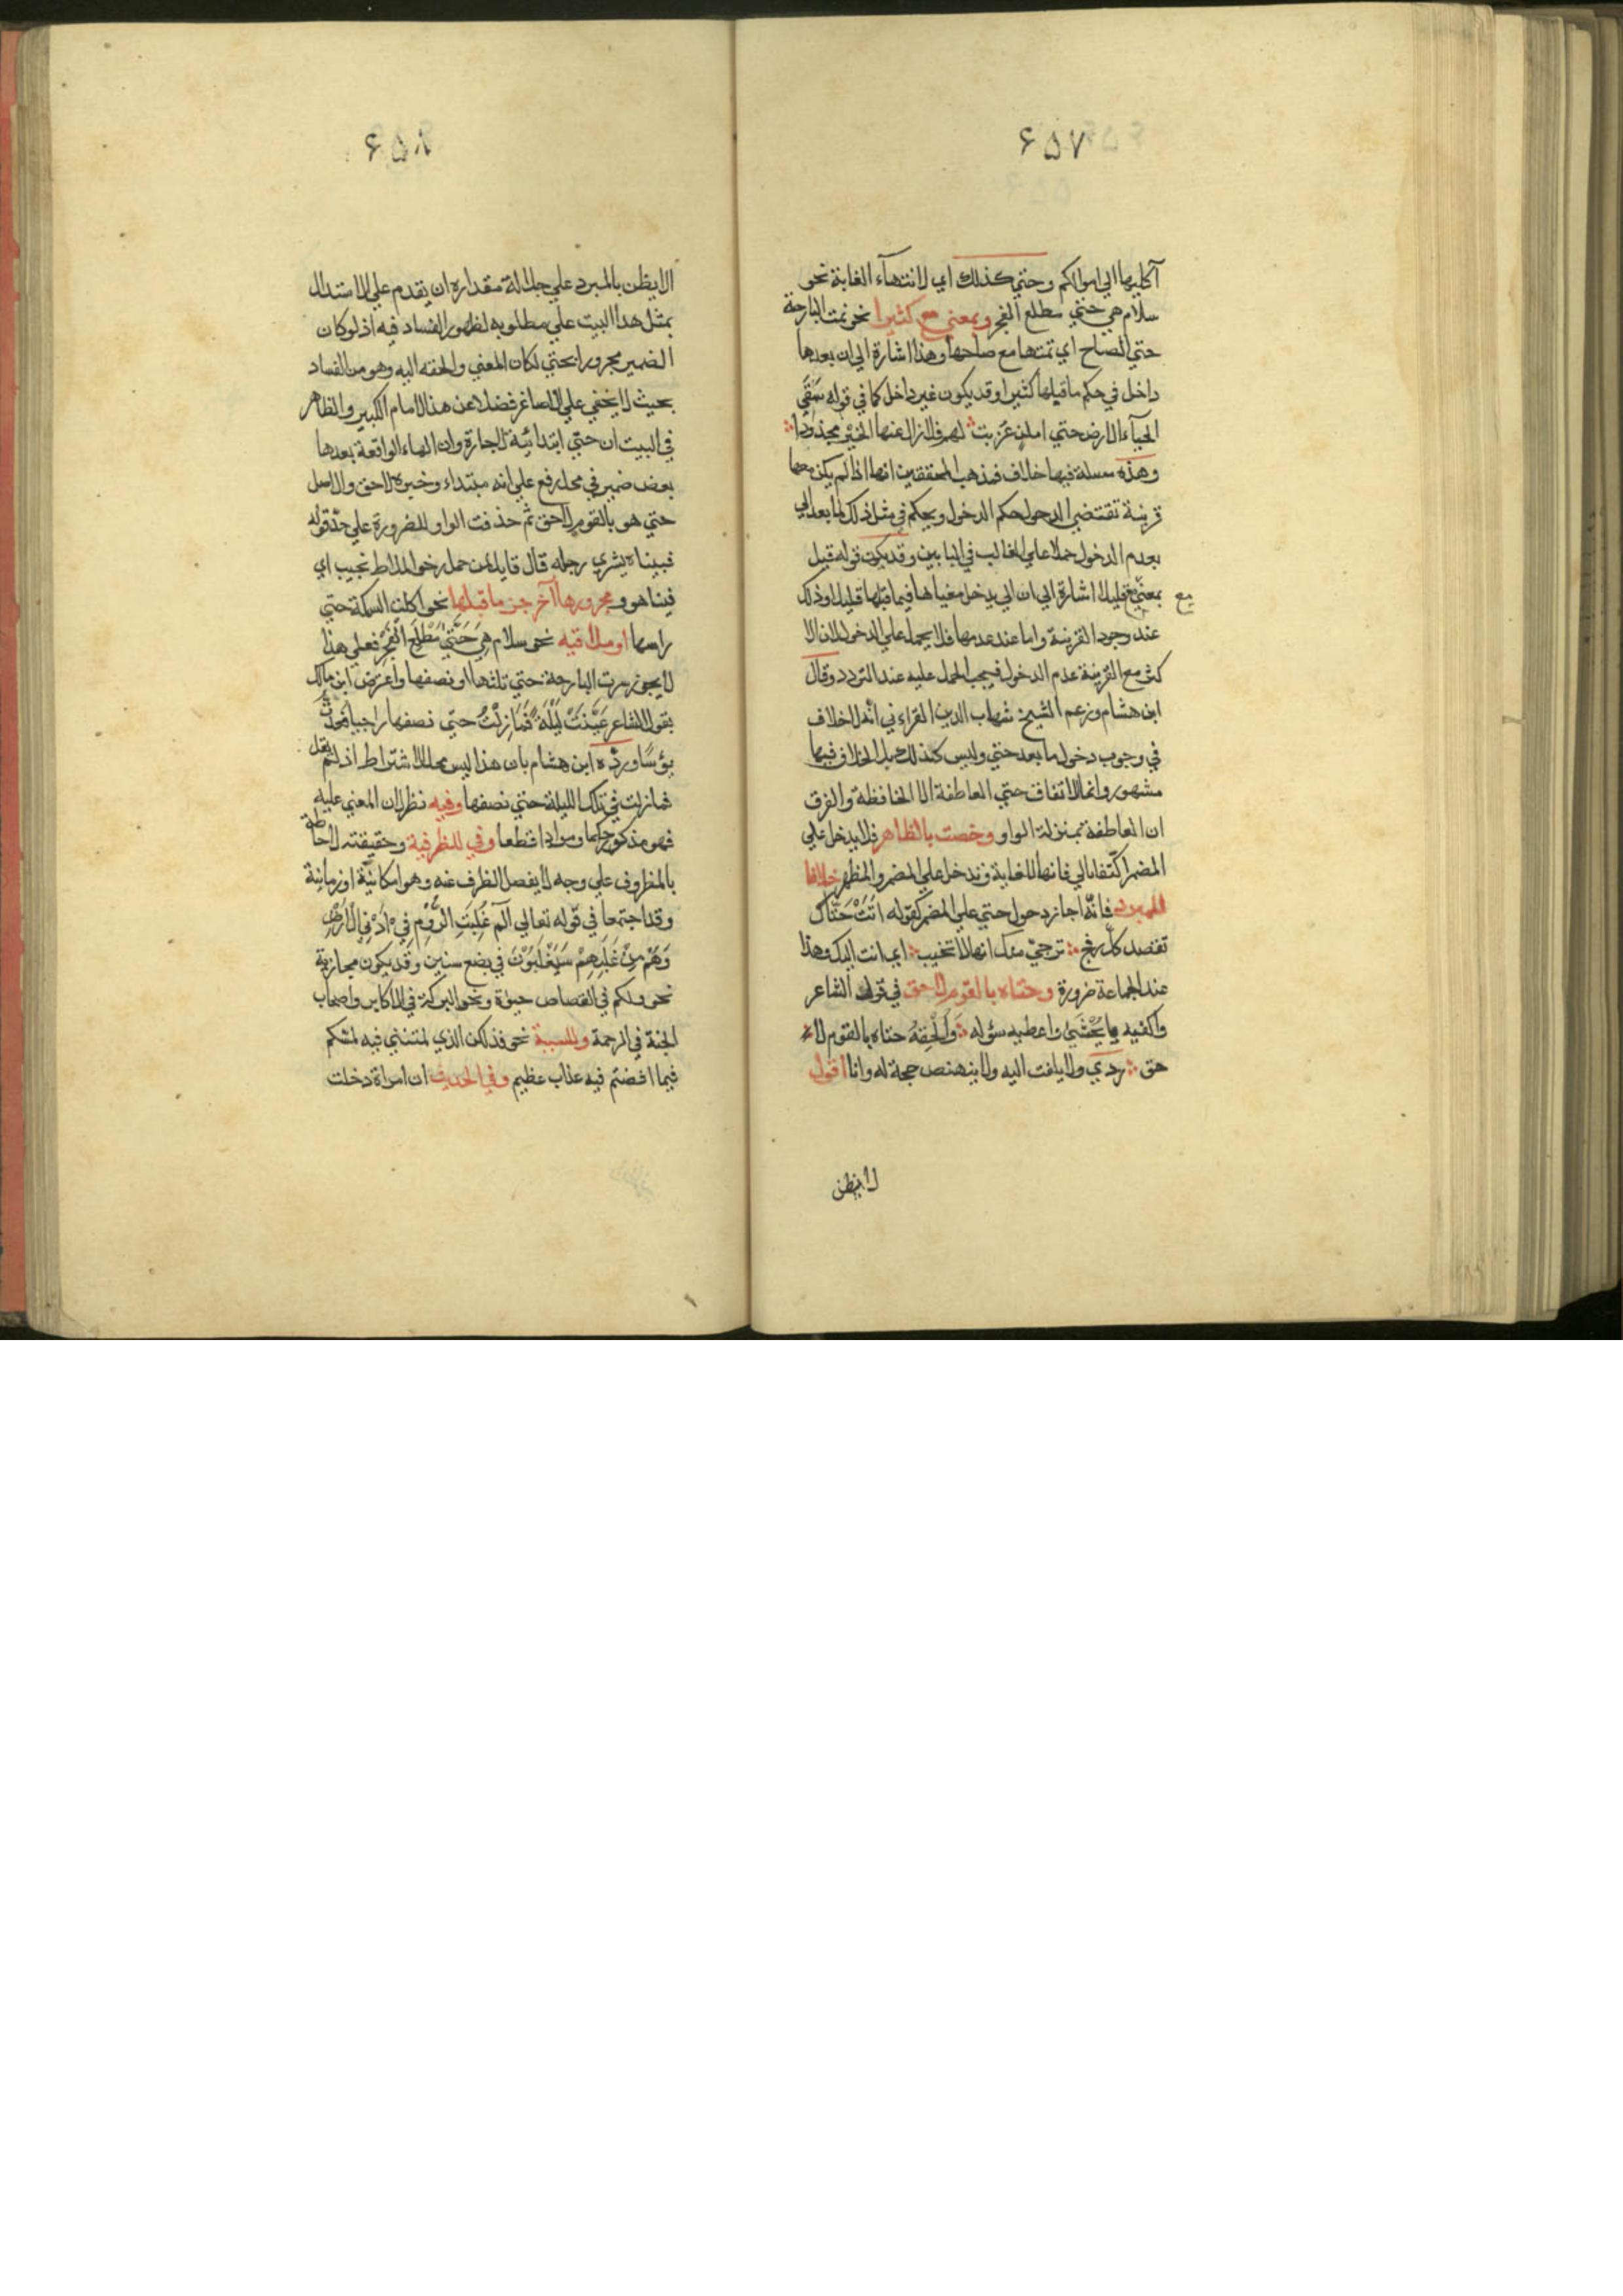 ۶۵۷
آكليها الي اموالكم وحتي كذلك اي لانتهآء الغاية نحو
سلام هي حتي مطلع الفجر وبمعني مع كثيرا نحو نمت البارحة
حتي الصباح اي نمتها مع صباحها وهذا اشارة الي ان بعدها
داخل في حكم ما قبلها كثيرا وقد يكون غير داخل كما في قوله سَقَي
الحيآء الارض حتي امكن عزبت لهم فلا زال عنها الخير مجذوذا
وهذه مسلة فيها خلاف فمذهب المحققين انها اذا لم يكن معها
قرينة تقتضي الدخول حكم الدخول ويحكم في مثل ذلك لما بعد الي
بعدم الدخول حملا علي الغالب في البابين وقد يكون قوله قبيل
بمعني مع قليلا اشارة الي ان الي يدخل مغياها فيما قبلها قليلا وذلك
مع
عند وجود القرينة واما عند عدمها فلا يحمل علي الدخول لان الا
كثر مع القرينة عدم الدخول فيجب الحمل عليه عند التردد وقال
ابن هشام وزعم الشيخ شهاب الدين القرافي انه لا خلاف
في وجوب دخول ما بعد حتي وليس كذلك بل الخلاف فيها
مشهور وانما الاتفاق حتي العاطفة الا الخافظة والفرق
ان العاطفة بمنزلة الواو وخصت بالظاهر فلا يدخل علي
المضمر اكتفا بالي فانها للغاية وتدخل علي المضمر والمظهر خلافا
للمبرد فانّه اجاز دخول حتي علي المضمر كقوله اتَتْ حَتّاك
تقصد كلّ فج ترجيّ منك انها لا تخيب اي اتت اليك وهذا
عند الجماعة ضرورة وحتاه بالقوم لاحق في قول الشاعر
واكفيه ما يُخْشَي واعطيه سؤله وَاُلْحِقهُ حتاه بالقوم لا
حق ردي ولا يلفت اليه ولا ينهض حجة له وانا اقول
لا يظن
۶۵۸
لا يظن بالمبرد علي جلالة مقداره ان يقدم علي الاستدال
بمثل هذا البيت علي مطلوبه لظهور الفساد فيه اذ لو كان
الضمير مجرورا بحتي لكان المعني والحقه اليه وهو من الفساد
بحيث لا يخفي علي الاصاغر فضلا عن هذا الامام الكبير والظاهر
في البيت ان حتي ابتدائية لا جارة وان الهاء الواقعة بعدها
بعض ضمير في محل رفع علي انه مبتداء وخبره لاحق والاصل
حتي هو بالقوم لاحق ثم حذفت الواو للضرورة علي حدّ قوله
فبيناه يشري رحله قال قايل لمن جمل رخو الملاط نجيب اي
فبينا هو ومجرورها آخر جزء ما قبلها نحو اكلت السمكة حتي
راسها او ملاقيه نحو سلام هِيَ حَتّي مَطْلَعِ الْفَجْرِ فعلي هذا
لا يجوز سرت البارحة حتي ثلثها او نصفها واعترض ابن مالك
بقول الشاعر عَيَّنَتْ لَيْلَةً فَمَا زِلْتُ حتي نصفها راجيا فعدتُّ
يؤسًا وردّه ابن هشام بان هذا ليس محل الاشتراط اذ لم يقل
فما زلت في تلك الليلة حتي نصفها وفيه نظر لان المعني عليه
فهو مذكور حكما ومرادا قطعا وفي للظرفية وحقيقته احاطة
بالمظروف علي وجه لا يفصل الظرف عنه وهو امكانيّة او زمانية
وقد اجتمعا في قوله تعالي آلم غُلِبَتِ الرُّوْمُ فِيْ اَدْنَي الْاَرْضِ
وَهُمْ مِنْ غَلَبِهِمْ سَيَغْلِبُوْنَ في بضع سنين وقد يكون مجازية
نحو ولكم في القصاص حيوة ونحو البركة في الاكابر واصحاب
الجنة في الرحمة وللسببة نحو فذلكن الذي لمتنني فيه لمسكم
فيما افضتم فيه عذاب عظيم وفي الحديث ان امراة دخلت